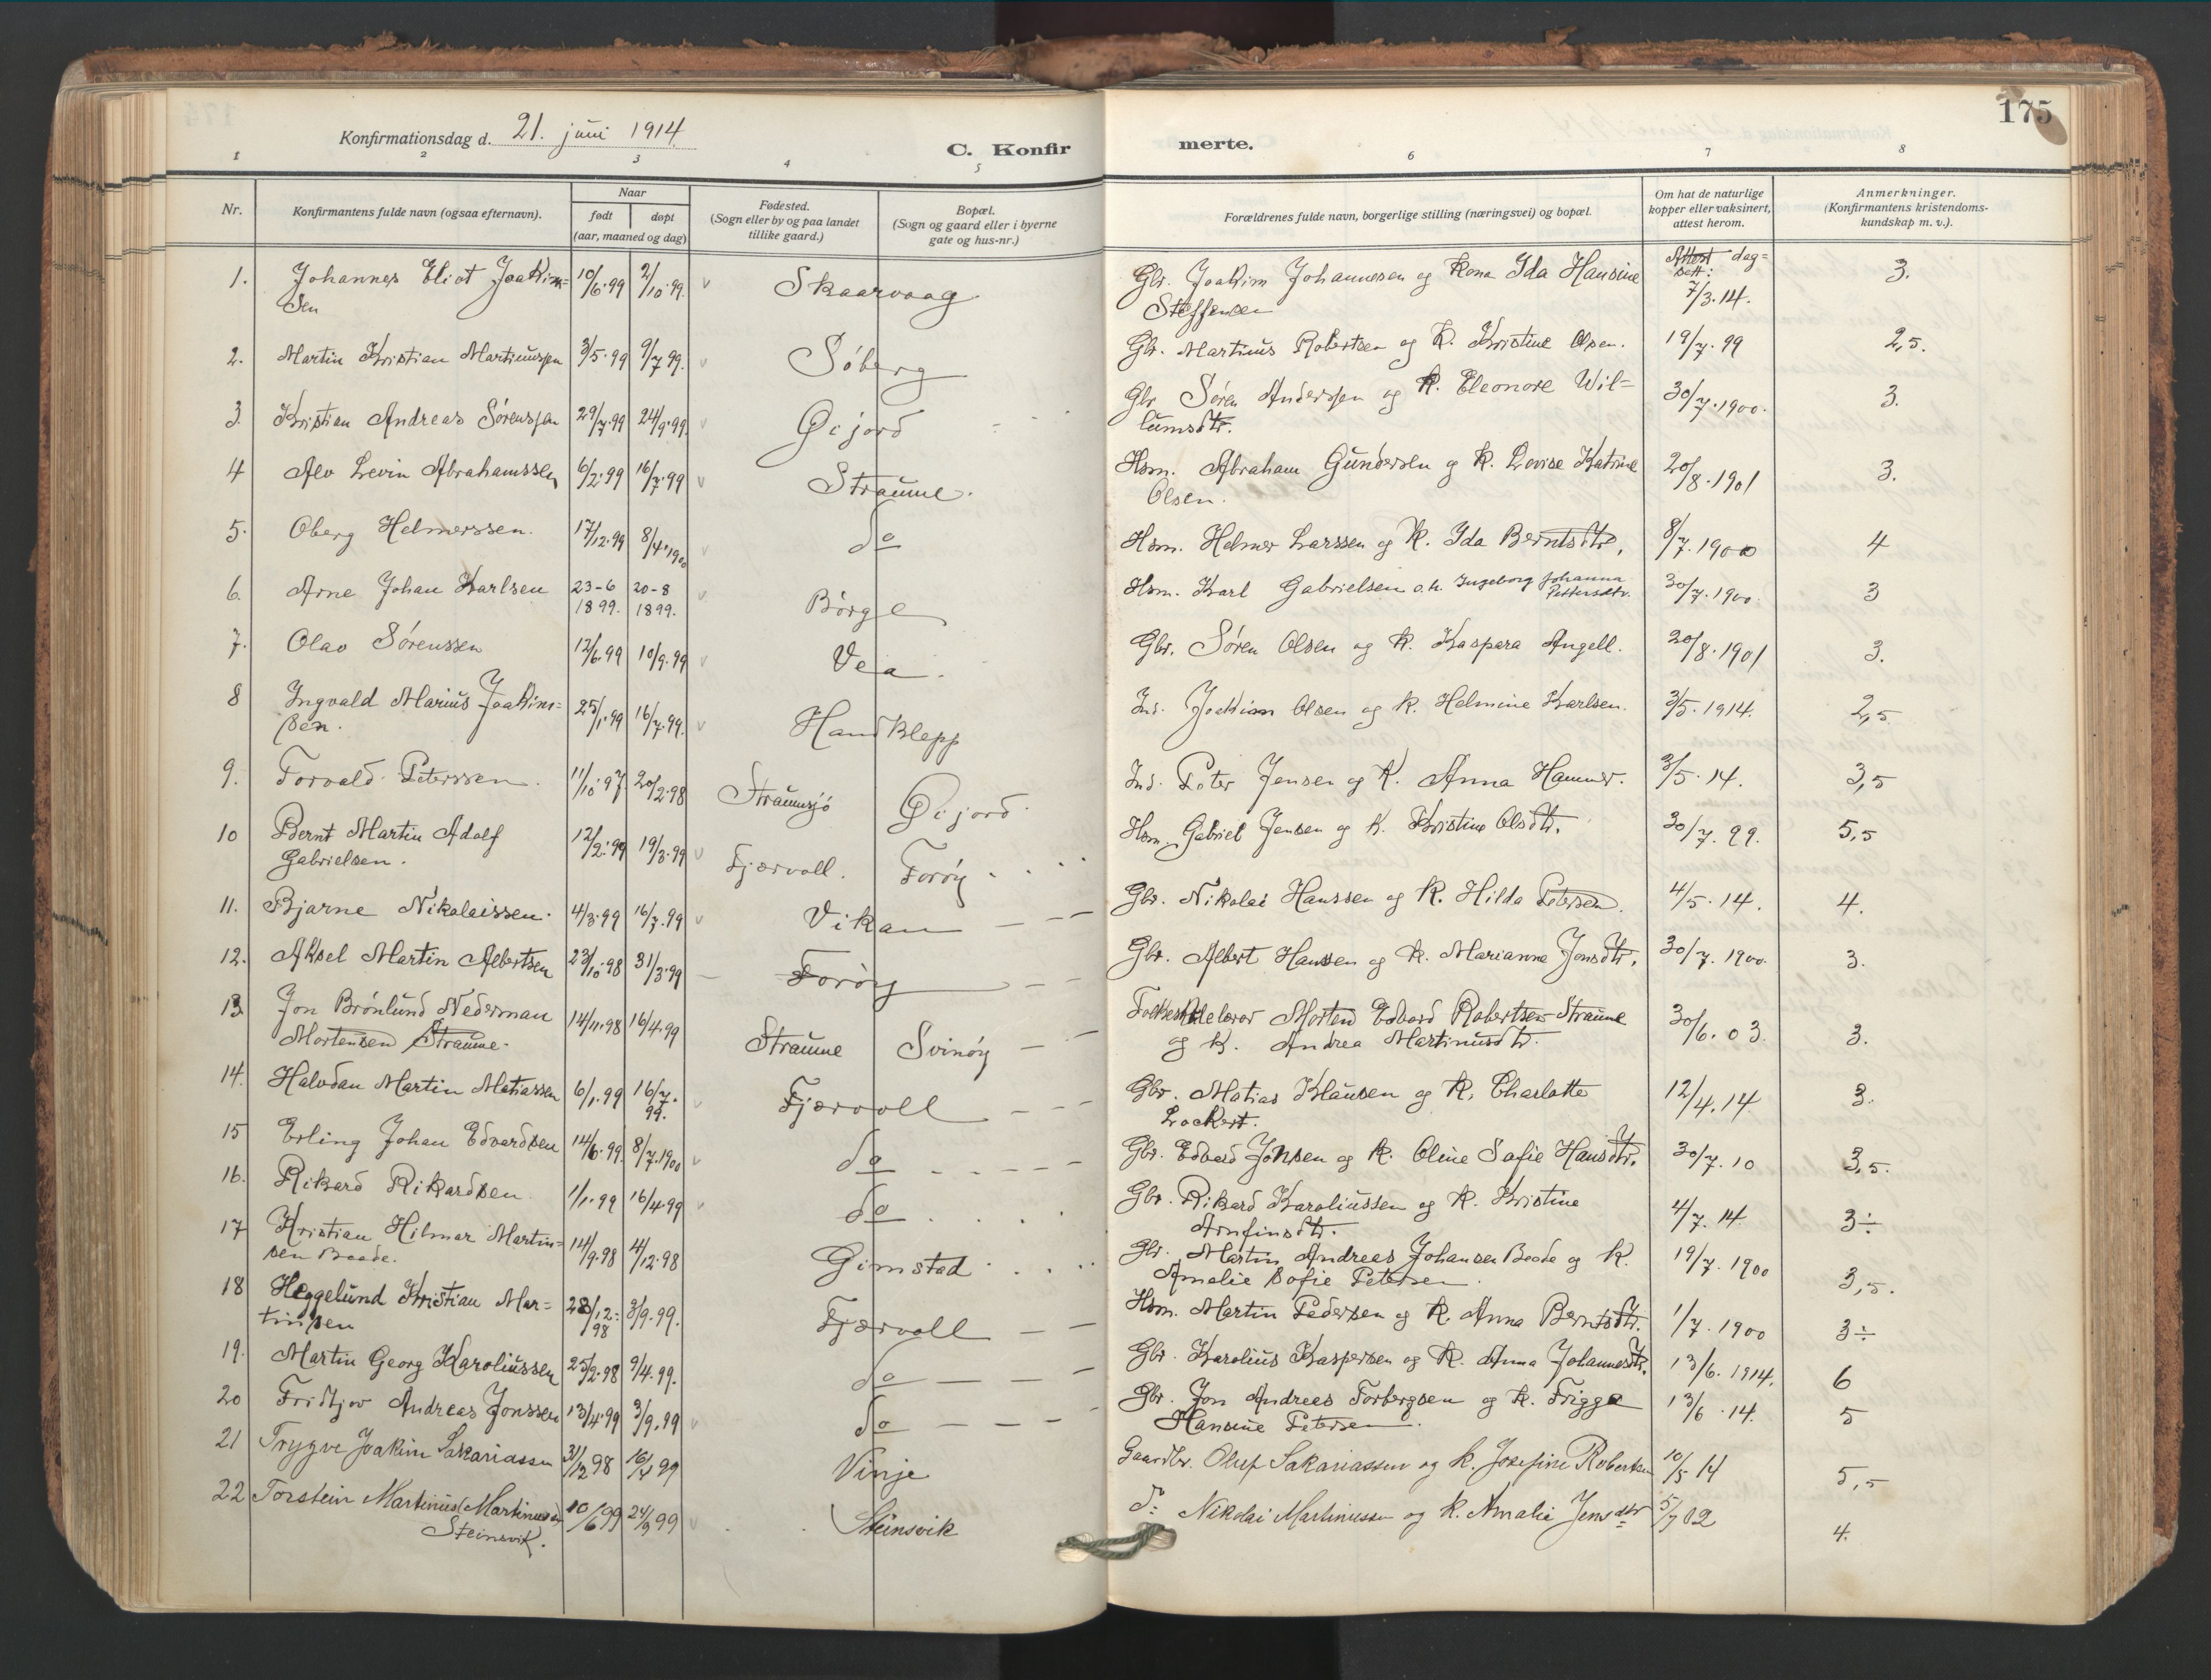 175
Konfirmationsdag d. 21. juni 1914.
C. Konfirmerte.
1 2 3 4 5 6 7 8
Nr. Konfirmantens fulde navn (ogsaa efternavn). Naar født døpt (aar, maaned og dag) Fødested. (Sogn eller by og paa landet tillike gaard.) Bopæl. (Sogn og gaard eller i byerne gate og hus-nr.) Forældrenes fulde navn, borgerlige stilling (næringsvei) og bopæl. Om hat de naturlige kopper eller vaksinert, attest herom. Anmerkninger. (Konfirmantens kristendoms-kundskap m. v.).
1. Johannes Eliot Joakim= 10/6.99 2/10.99. Skaarvaag Gbr. Joakim Johannesen og Kona Ida Hansine Attest dag= 3.
sen Steffensen sett: 7/3.14.
2. Martin Kristian Martinussen 3/5.99 9/7 99. Søberg Gbr. Martinus Robertsen og K. Kristine Olsen. 19/7.99 2,5.
3. Kristian Andreas Sørenssen 29/7.99 24/9.99. Øijord Gbr Søren Anderssen og K. Eleonore Wil= 30/7.1900. 3.
lumsdtr.
4 Alv Levin Abrahamssen 6/2.99 16/7.99 Straume. Hsm. Abraham Gundersen og K. Lovise Katrine 20/8.1901 3.
Olsen.
5. Oberg Helmerssen. 17/12.99 8/4.1900 do Hsm. Helmer Larssen og K. Ida Berntsdtr. 8/7.1900 4
6. Arne Johan Karlsen 23-6 1899. 20-8 1899. Børge Hsm. Karl Gabrielsen o.h. Ingeborg Johanna Pettersdtr. 30/7.1900. 3
7. Olav Sørenssen 12/6.99 10/9.99 Vea. Gbr. Søren Olsen og K. Kaspara Angell. 20/8.1901 3.
8 Ingvald Marius Joakims= 25/1.99 16/7.99. Handklepp Ind. Joakim Olsen og K. Helmine Karlsen. 3/5.1914. 2,5.
sen.
9. Torvald Peterssen. 11/10.97. 20/2.98 Straumsjø Øijord Ind. Peter Jensen og K. Anna Hammer. 3/5.14. 3,5
10 Bernt Martin Adolf 12/2.99 19/3.99 Fjærvoll. Forøy Hsm. Gabriel Jensen og K. Kristine Olsdtr. 30/7.99. 5,5
Gabrielsen.
11. Bjarne Nikolaissen. 4/3.99 16/7.99 Vikan Gbr. Nikolai Hanssen og K. Hilda Petersen. 4/5.14. 4.
12. Aksel Martin Albertsen 23/10.98 31/3.99 Forøy Gbr. Albert Hanssen og K. Marianna Jonsdtr. 30/7.1900. 3.
13. Jon Brønlund Nederman 14/11.98 16/4.99 Straume Svinøy Folkeskolelærer Morten Edvard Robertsen Straume 30/6.03. 3.
Mortensen Straume. og K. Andrea Martinusdtr.
14. Halvdan Martin Matiassen 6/1.99 16/7.99. Fjærvoll Gbr. Matias Klausen og K. Charlotte 12/4.14 3.
Lockert.
15 Erling Johan Edvardsen 14/6.99. 8/7.1900 do Gbr. Edvard Johnsen og K. Oline Sofie Hansdtr. 30/7.10 3,5.
16. Rikard Rikardsen 1/1.99 16/4.99 do Gbr. Rikard Karoliussen og K. Kristine 4/7.14. 3÷
Arnfinsdtr.
17 Kristian Hilmar Martin= 14/9.98 4/12.98 Gimstad Gbr. Martin Andreas Johansen Boade og K. 19/7.1900 3,5.
sen Boade. Amalie Sofie Petersen.
18 Heggelund Kristian Mar= 28/12.98 3/9.99. Fjærvoll Hsm. Martin Pedersen og K. Anna Berntsdtr. 1/7.1900 3÷
tinsen
19. Martin Georg Karoliussen 25/2.98 9/4.99. do Gbr. Karolius Kaspersen og K. Anna Johannesdtr. 13/6.1914. 6
20 Fridtjov Andreas Jonssen 13/4.99 3/9.99 do Gbr. Jon Andreas Torbergsen og K. Frigga 13/6.14. 5
Hansine Petersen.
21 Trygve Joakim Sakariassen 31/12 98 16/4 99 Vinje Gaardbr. Oluf Sakariassen og K. Josefine Robertsen 10/5 14 5,5
22 Torstein Martinus (Martinussen) 10/6 99 24/9 99 Steinsvik do Nikolai Martinussen og K. Amalie Jensdtr 5/7 02 4.
Steinsvik.